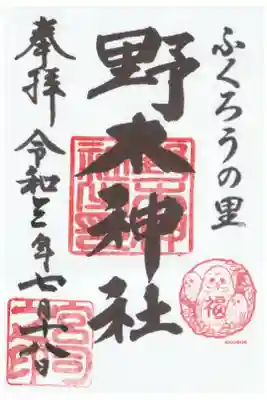 ふくろうの里
野木神社
奉拝
令和三年七月十八日
福